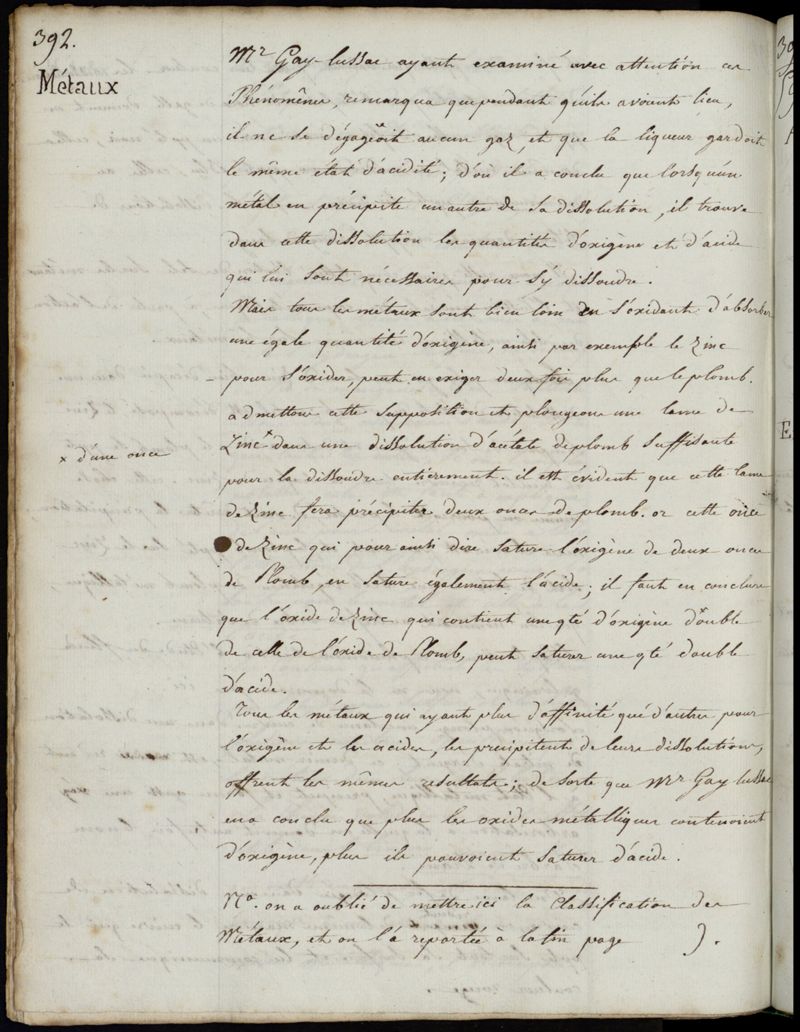 392.
Métaux
Mr Gay-lussac ayant examiné avec attention ces
Phénomênes, remarqua que pendant qu'ils avoient lieu,
il ne se dégageoit aucun gaz et que la liqueur gardoit
le même état d'acidité; d'où il a conclu que lorsqu'un
métal en précipite un autre de sa dissolution, il trouve
dans cette dissolution les quantités d'oxigène et d'acide
qui lui sont nécessaires pour s'y dissoudre.
Mais tous les métaux sont bien loin en s'oxidant d'absorber
une égale quantité d'oxigène, ainsi par exemple le Zinc
pour s'oxider, peut en exiger deux fois plus que le plomb.
admettons cette supposition et plongeons une lame de
Zinc x dans une dissolution d'acétate de plomb suffisante
x d'une once
pour la dissoudre entièrement. il est évident que cette lame
de Zinc fera précipiter deux onces de plomb. or cette once
de Zinc qui pour ainsi dire sature l'oxigène de deux onces
de Plomb, en sature également l'acide; il faut en conclure
que l'oxide de Zinc qui contient une qté d'oxigène double
de celle de l'oxide de Plomb, peut saturer une qté double
d'acide.
Tous les métaux qui ayant plus d'affinité que d'autres pour
l'oxigène et les acides, les précipitent de leurs dissolutions,
offrent les mêmes resultats; de sorte que Mr Gay lussac
en a conclu que plus les oxides métalliques contenoient
d'oxigène, plus ils pouvoient saturer d'acide.
Na. on a oublié de mettre ici la Classification des
Métaux, et on l'a reportée à la fin page ).